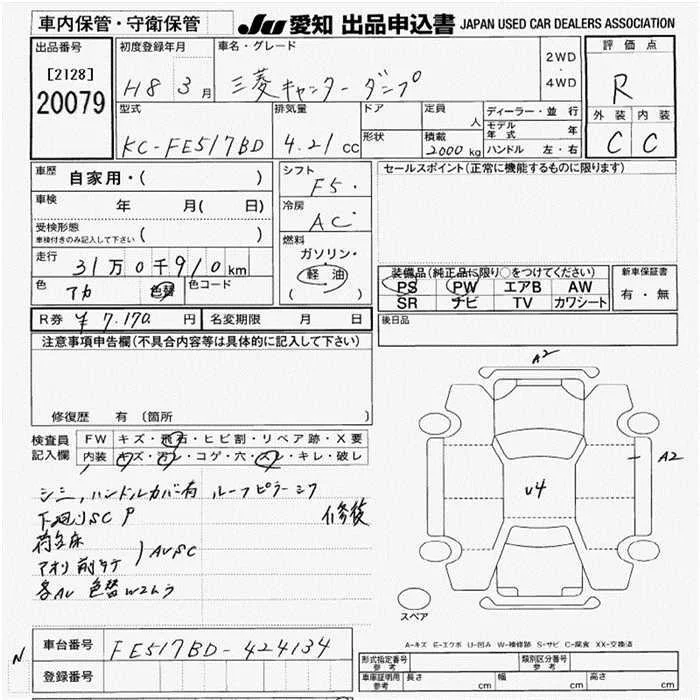 車内保管・守衛保管
JU 愛知 出品申込書 JAPAN USED CAR DEALERS ASSOCIATION
出品番号
[2128]
20079
初度登録年月
H8 3月
車名・グレード
三菱キャンター ダンプ
2WD
・
4WD
評価点
R
外装 内装
C C
型式
KC-FE517BD
排気量
4.21cc
ドア
形状
定員
人
積載
2000kg
ディーラー・並行
モデル年式 年
ハンドル 左・右
車歴
自家用・( )
車検
年 月( 日)
受検形態
車検付きのみ記入して下さい ( )
走行
31万0千910km
色
アカ
色替
色コード
シフト
F5.
冷房
AC
燃料
ガソリン・
軽油
( )
セールスポイント(正常に機能するものに限ります)
装備品(純正品に限り○をつけてください)
PS PW エアB AW
SR ナビ TV カワシート
新車保証書
有・無
R券 ¥7,170 円
名変期限 月 日
後日品
注意事項申告欄(不具合内容等は具体的に記入して下さい)
修復歴 有(箇所 )
検査員
記入欄
FW キズ・飛石・ヒビ割・リペア跡・X要
内装 キズ・汚レ・コゲ・穴・スレ・キレ・破レ
シミ,ハンドルカバー有 ルーフピラーシワ
下廻りSC P
修復
AVSC
アオリ
色替
A2
A2
U4
スペア
A-キズ E-エクボ U-凹み W-補修跡 S-サビ C-腐食 XX-交換済
N
車台番号 FE517BD-424134
登録番号
形式指定番号
参考
類別区分番号
参考
車庫証明用
参考
長さ cm
幅 cm
高さ cm